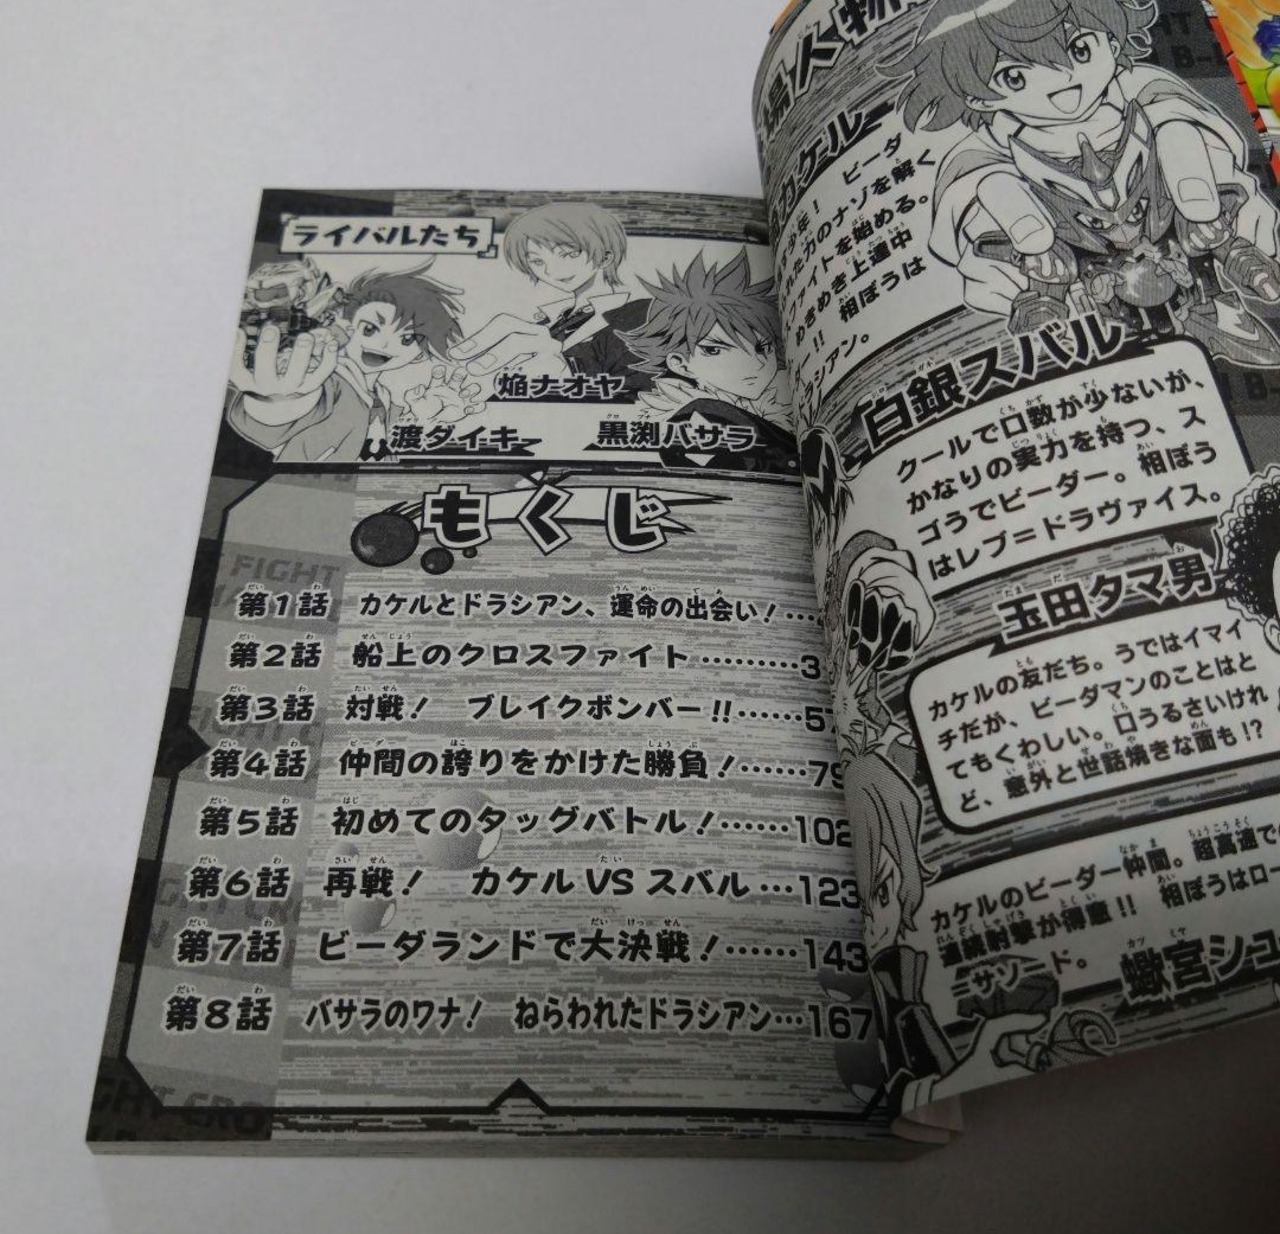 ライバルたち
焔ナオヤ
渡ダイキ
黒渕バサラ
もくじ
第1話 カケルとドラシアン、運命の出会い!…
第2話 船上のクロスファイト………3
第3話 対戦! ブレイクボンバー!!……57
第4話 仲間の誇りをかけた勝負!……79
第5話 初めてのタッグバトル!……102
第6話 再戦! カケルVSスバル…123
第7話 ビーダランドで大決戦!……143
第8話 バサラのワナ! ねらわれたドラシアン…167
FIGHT
場人物
カケル
ビーダ
少年!
れた力のナゾを解く
ファイトを始める。
めきめき上達中
!! 相ぼうは
ラシアン。
白銀スバル
クールで口数が少ないが、
かなりの実力を持つ、ス
ゴうでビーダー。相ぼう
はレブ=ドラヴァイス。
玉田タマ男
カケルの友だち。うではイマイ
チだが、ビーダマンのことはと
てもくわしい。口うるさいけれ
ど、意外と世話焼きな面も!?
カケルのビーダー仲間。超高速で
連続射撃が得意!! 相ぼうはロー
=サソード。
蠍宮シュ